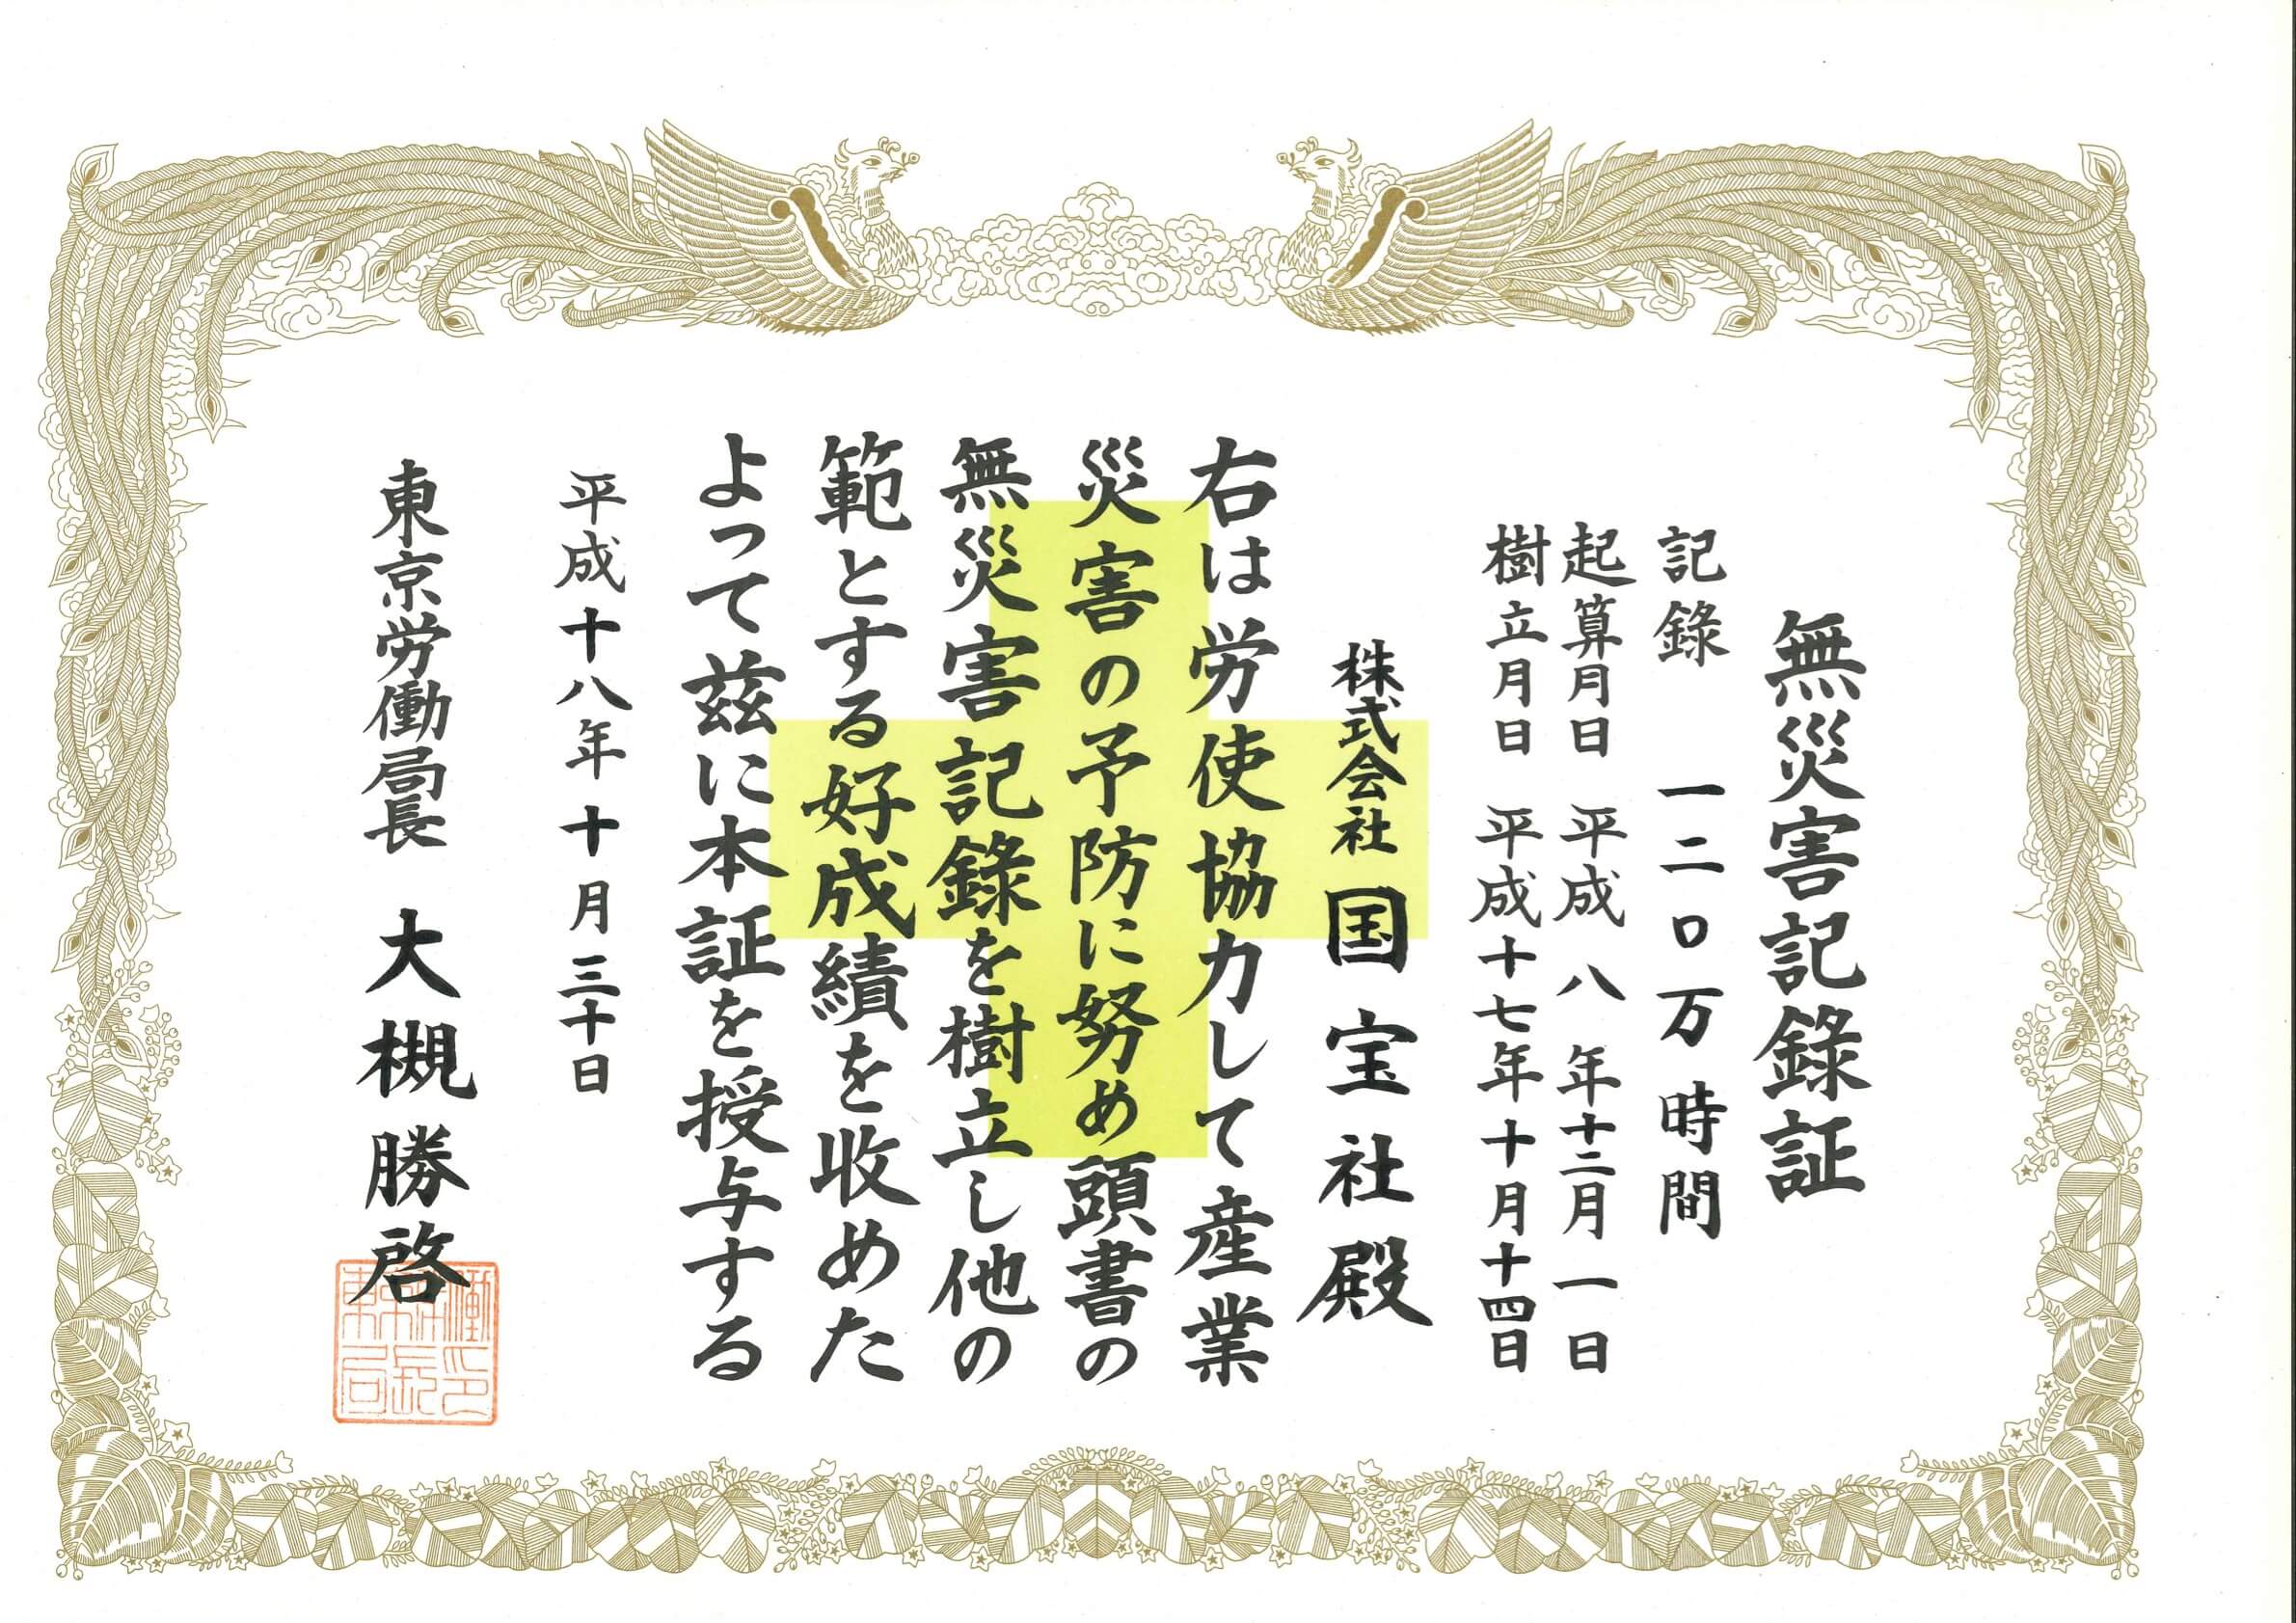 無災害記録証
記録 一二〇万時間
起算月日 平成八年十二月一日
樹立月日 平成十七年十月十四日
株式会社 国宝社殿
右は労使協力して産業
災害の予防に努め頭書の
無災害記録を樹立し他の
範とする好成績を収めた
よって茲に本証を授与する
平成十八年十月三十日
東京労働局長 大槻勝啓